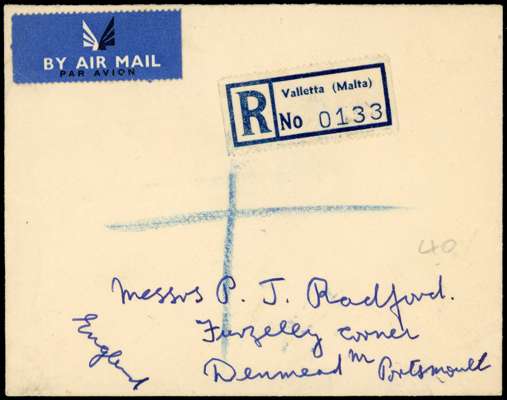 BY AIR MAIL
PAR AVION
R
Valletta (Malta)
No 0133
40
Messrs P. J. Radford.
Furzelly Corner
Denmead Nr Portsmouth
England